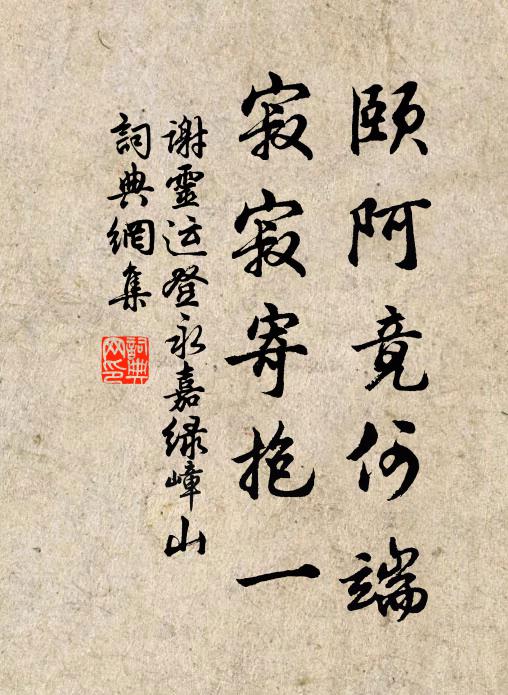 頤阿竟何端
寂寂寄抱一
謝靈运登永嘉绿嶂山
詞典網集
詞典
网印